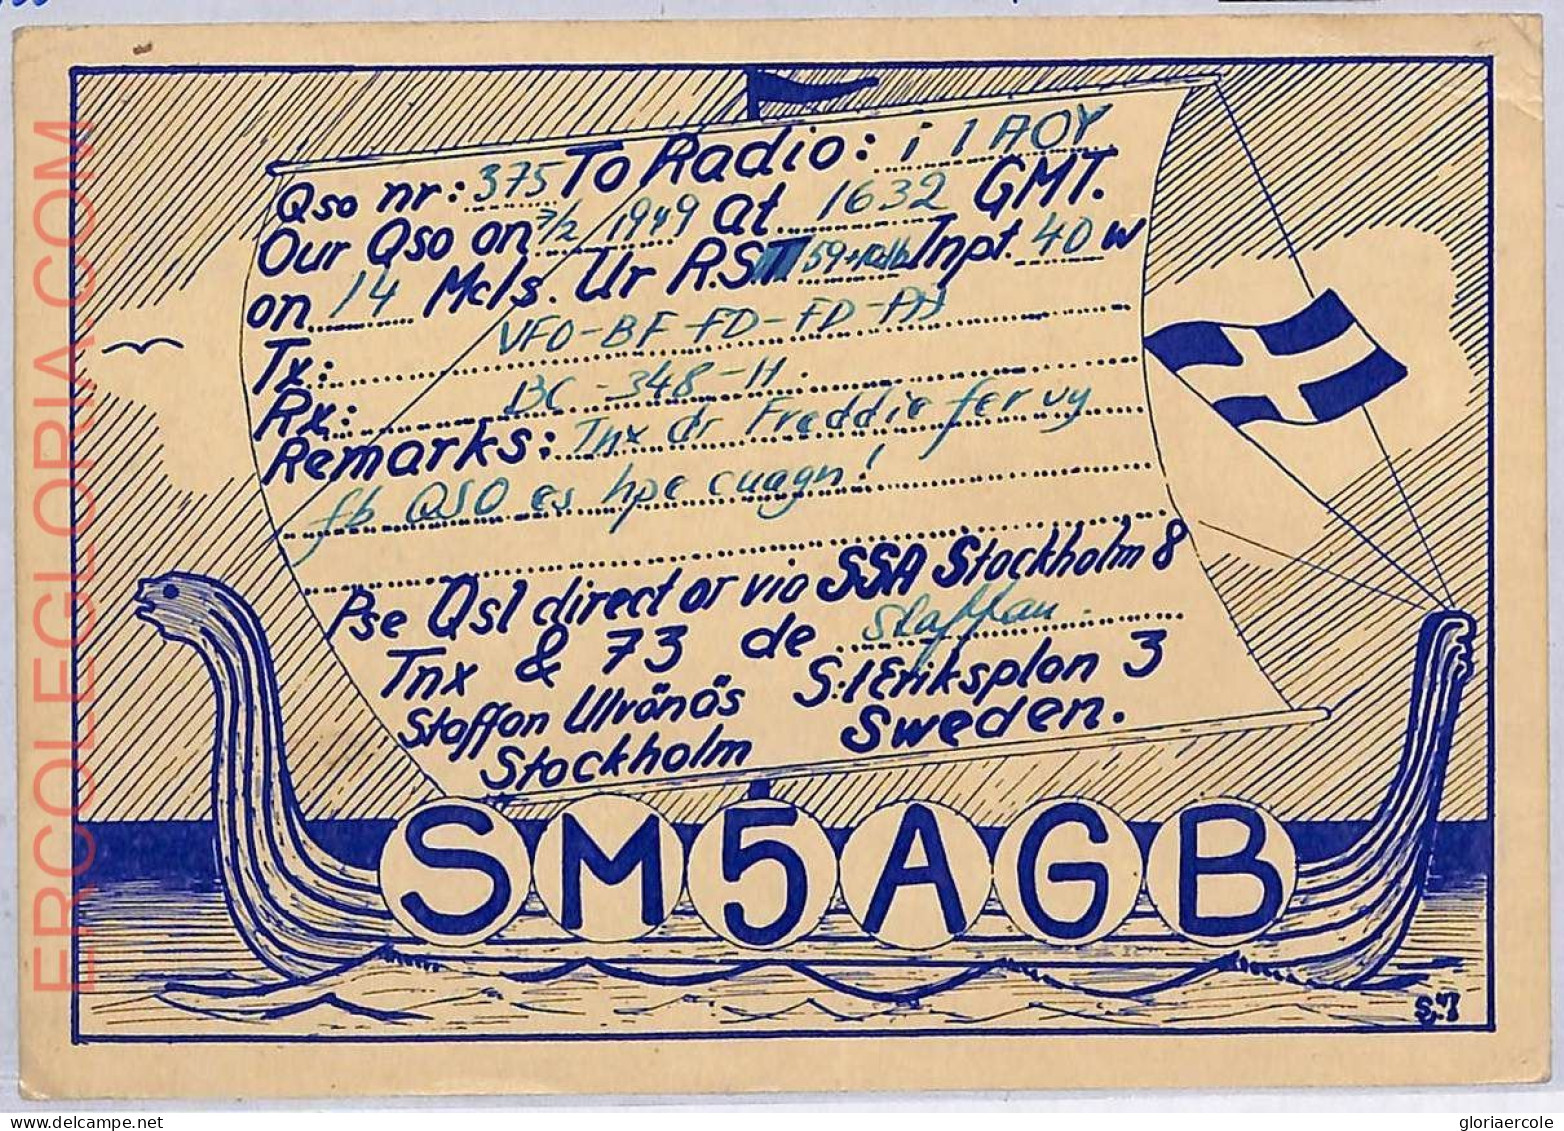 Qso nr: 375 To Radio: i 1 AOY
Our Qso on 7/2 1949 at 1632 GMT.
on 14 Mcls. Ur R.S. 59+10db Inpt. 40 w
Tx: VFO-BF-FD-FD-PA
Rx: BC-348-H.
Remarks: Tnx dr Freddie fer vy
fb QSO es hpe cuagn!
Pse Qsl direct or via SSA Stockholm 8
Tnx & 73 de Staffan.
Staffan Ulvönäs S:t Eriksplan 3
Stockholm Sweden.
SM5AGB
ERCOLEGLORIA.COM
gloriaercole